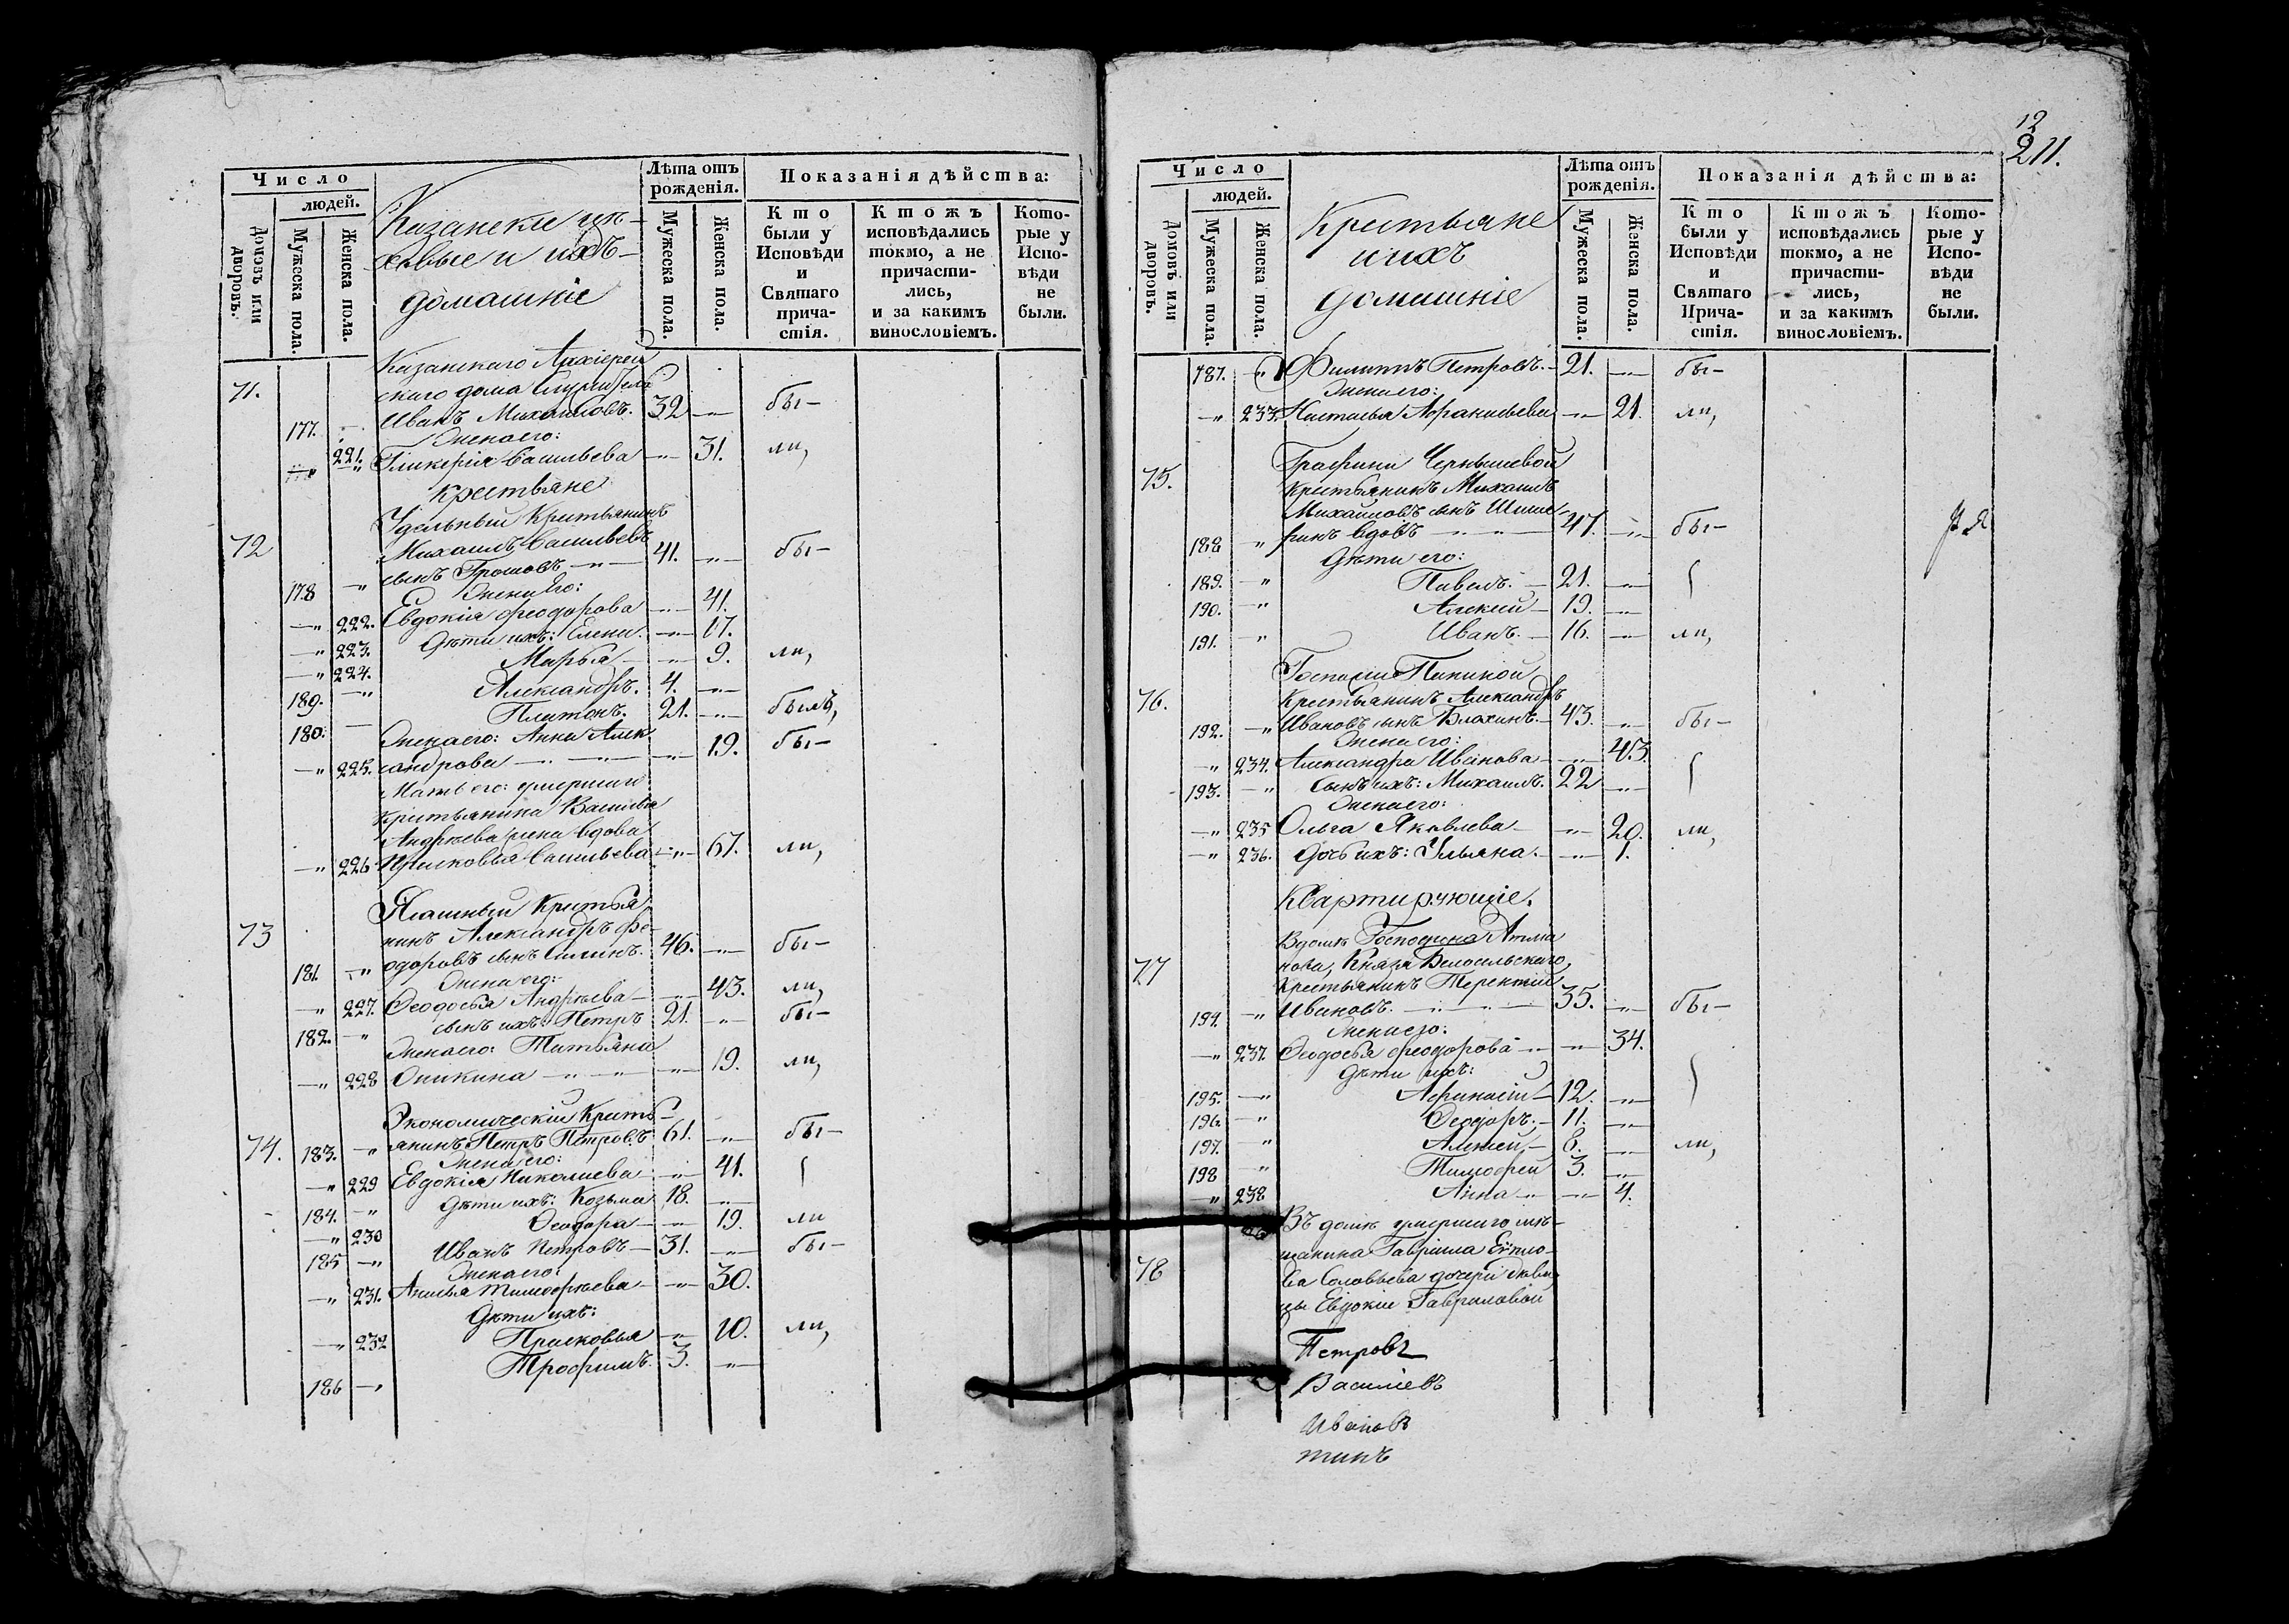 Число
людей.
Домовъ или дворовъ.
Мужеска пола.
Женска пола.
Казанскіе цѣ-
ховые и ихъ
домашніе
Лѣта отъ рожденія.
Мужеска пола.
Женска пола.
Показанія дѣйства:
Кто были у Исповѣди и Святаго причастія.
Ктожъ исповѣдались токмо, а не причастились, и за какимъ винословіемъ.
Которые у Исповѣди не были.
71.
Казанскаго Архіерей
скаго дома служитель
177. Иванъ Михайловъ. 32 бы-
Жена его:
221. Гликерія Васильева 31. ли,
Крестьяне
72 Удельный Крестьянинъ
Михаилъ Васильевъ
178 сынъ Грошовъ 41. бы-
Жена Его:
222. Евдокія Феодорова 41.
223. Дѣти ихъ: Елена 17.
224. Марья 9. ли,
189. Александръ. 4.
180. Платонъ. 21. былъ,
Жена его: Анна Алек
225. сандрова 19. бы-
Мать его: умершаго
крестьянина Василья
Андреева жена вдова
226 Прасковья Васильева 67. ли,
73 Ясашный Крестья
нинъ Александръ Фе-
181. одоровъ сынъ 46. бы-
Жена его:
227. Феодосья Андреева 43. ли,
182. сынъ ихъ: Петръ 21. бы-
Жена его: Татьяна
228 Оникина 19. ли,
Экономическій Кресть-
74. 183. янинъ Петръ Петровъ 61. бы-
Жена его:
229 Евдокія Николаева 41.
184. Дѣти ихъ: Козьма 18.
230 Феодора 19. ли
185 Иванъ Петровъ 31. бы-
Жена его:
231. Анисья Тимофеева 30.
Дѣти ихъ:
232 Прасковья 10. ли,
186 Трофимъ. 3.
12
211.
Число
людей.
Домовъ или дворовъ.
Мужеска пола.
Женска пола.
Крестьяне
и ихъ
домашніе
Лѣта отъ рожденія.
Мужеска пола.
Женска пола.
Показанія дѣйства:
Кто были у Исповѣди и Святаго Причастія.
Ктожъ исповѣдались токмо, а не причастились, и за какимъ винословіемъ.
Которые у Исповѣди не были.
187. Филиппъ Петровъ. 21. бы-
Жена его:
233. Настасья Афанасьева 21. ли,
Графини Чернышевой
75. Крестьянинъ Михаилъ
Михайловъ сынъ
188 вдовъ 47. бы-
Дѣти его:
189. Павелъ. 21.
190. Алексей 19.
191. Иванъ. 16. ли,
Госпожи
76. Крестьянинъ Александръ
192. Ивановъ сынъ Блохинъ. 43. бы-
Жена его:
234. Александра Иванова 43.
193. Сынъ ихъ: Михаилъ. 22
Жена его:
235 Ольга Яковлева 20. ли,
236. Дочь ихъ: Ульяна. 1.
Квартирующіе.
В домѣ Господина
77 нова, Князя Белосельскаго
крестьянинъ Терентій
194. Ивановъ. 35. бы-
Жена его:
237. Феодосья Феодорова 34.
Дѣти ихъ:
195. Афанасій 12.
196. Феодоръ. 11.
197. Алексей 8. ли,
198 Тимофей 3.
238 Анна 4.
Въ домѣ умершаго мѣ-
щанина Гавріила
78 ва Соловьева дочери дѣви
цы Евдокіи Гавриловой
Петровъ
Василіевъ
Иванов
тинъ